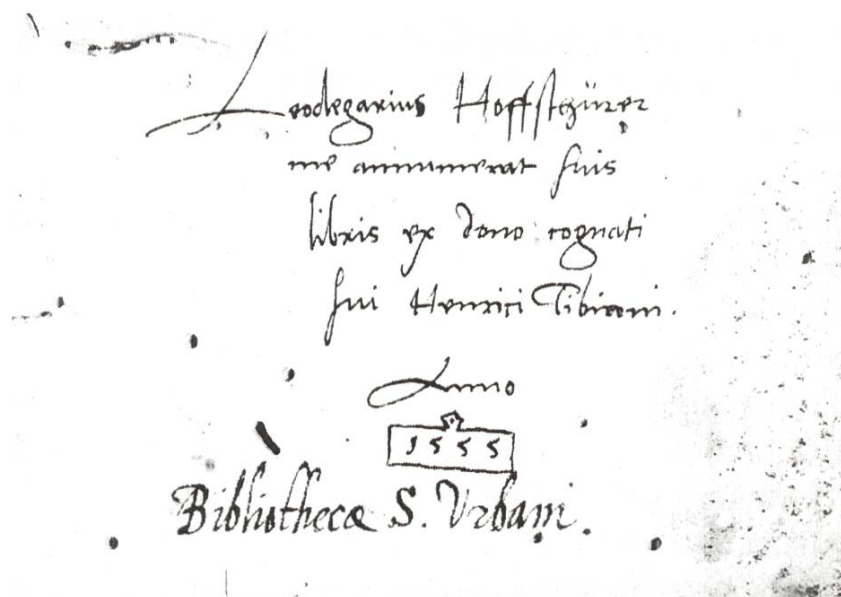 Leodegarius Hoffstetzürer
me annumerat suis
libris ex dono cognati
sui Henrici Tibicani.
Anno
1555
Bibliothecæ S. Urbani.